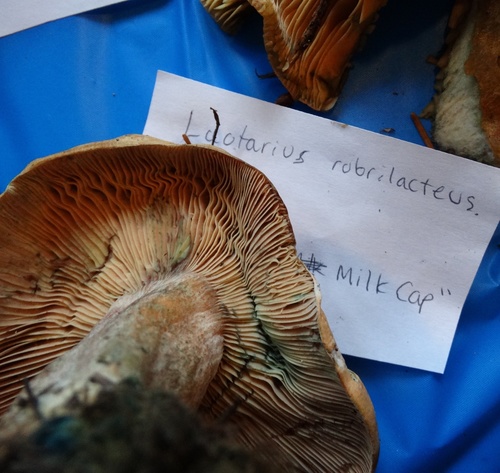 Lactarius rubrilacteus.
Milk Cap"